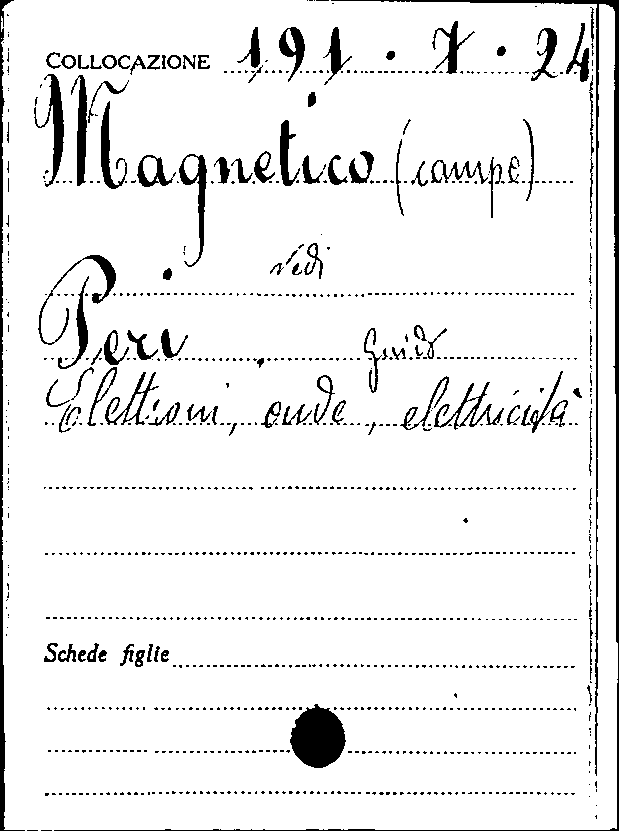 COLLOCAZIONE 191 . 7 . 24
Magnetico (campo)
vedi
Peri Guido
Elettroni, onde, elettricità
Schede figlie